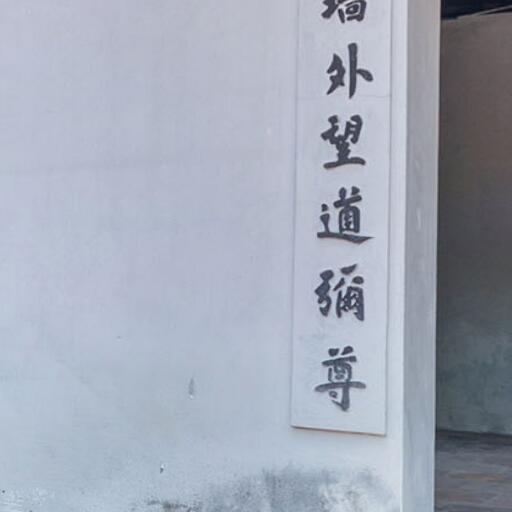 墙外望道彌尊